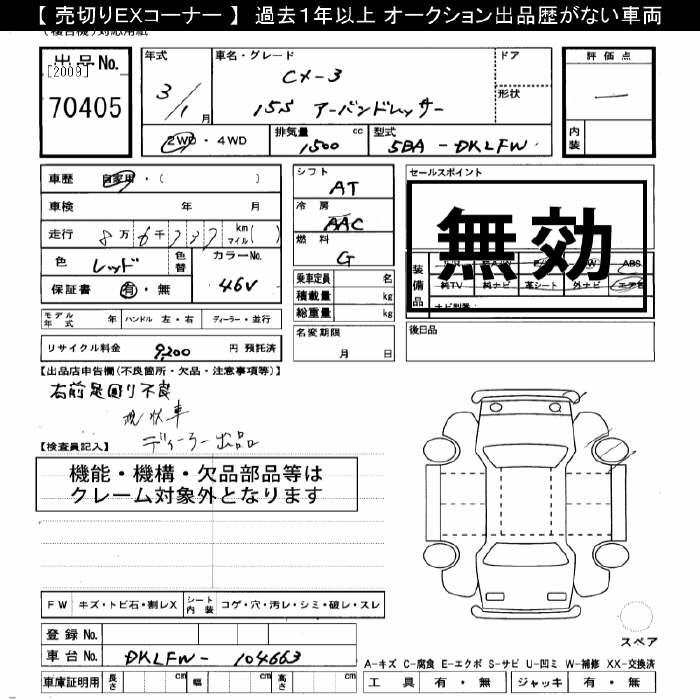 【 売切りEXコーナー 】 過去1年以上 オークション出品歴がない車両
出品No.
[2009]
70405
年式
3/1月
車名・グレード
CX-3
15S アーバンドレッサー
ドア
形状
評価点
—
内装
2WD・4WD
排気量 1500 cc
型式 5BA - DKLFW
車歴 自家用・( )
車検 年 月
走行 8万6千787 km マイル( )
色 レッド 色替 カラーNo. 46V
保証書 有・無
シフト AT
冷房 AAC
燃料 G
乗車定員 名
積載量 kg
総重量 kg
名変期限 月 日
セールスポイント
無効
装備品
ABS
純TV 純ナビ 革シート 外ナビ エアB
ナビ型番:
後日品
モデル年式 年 ハンドル 左・右 ディーラー・並行
リサイクル料金 9,200 円 預託済
【出品店申告欄(不良箇所・欠品・注意事項等)】
右前足回り不良
現状車
ディーラー出品
【検査員記入】
機能・機構・欠品部品等は
クレーム対象外となります
FW キズ・トビ石・割レX シート内装 コゲ・穴・汚レ・シミ・破レ・スレ
登録No.
車台No. DKLFW - 104663
車庫証明用 長さ cm 幅 cm 高さ cm
スペア
A-キズ C-腐食 E-エクボ S-サビ U-凹ミ W-補修 XX-交換済
工具 有・無 ジャッキ 有・無